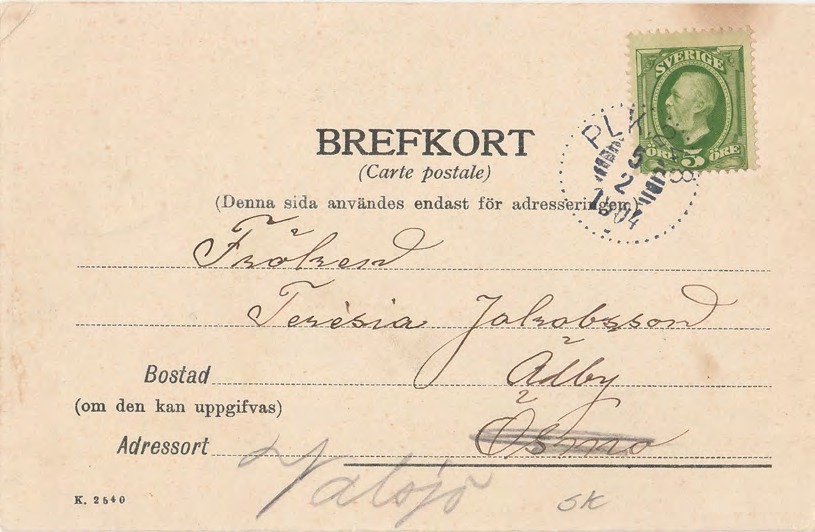 SVERIGE
ÖRE 5 ÖRE
BREFKORT
(Carte postale)
(Denna sida användes endast för adresseringen)
PLK
5
2
1904
Fröken
Teresia Jakobsson
Bostad Ådby
(om den kan uppgifvas)
Adressort Ösmo
Valsjö SK
K. 2540